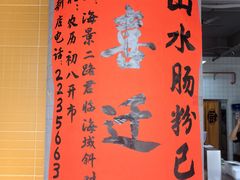 山水肠粉已
喜迁
海景二路君临海域斜对
农历初八开市
新店电话:2235663